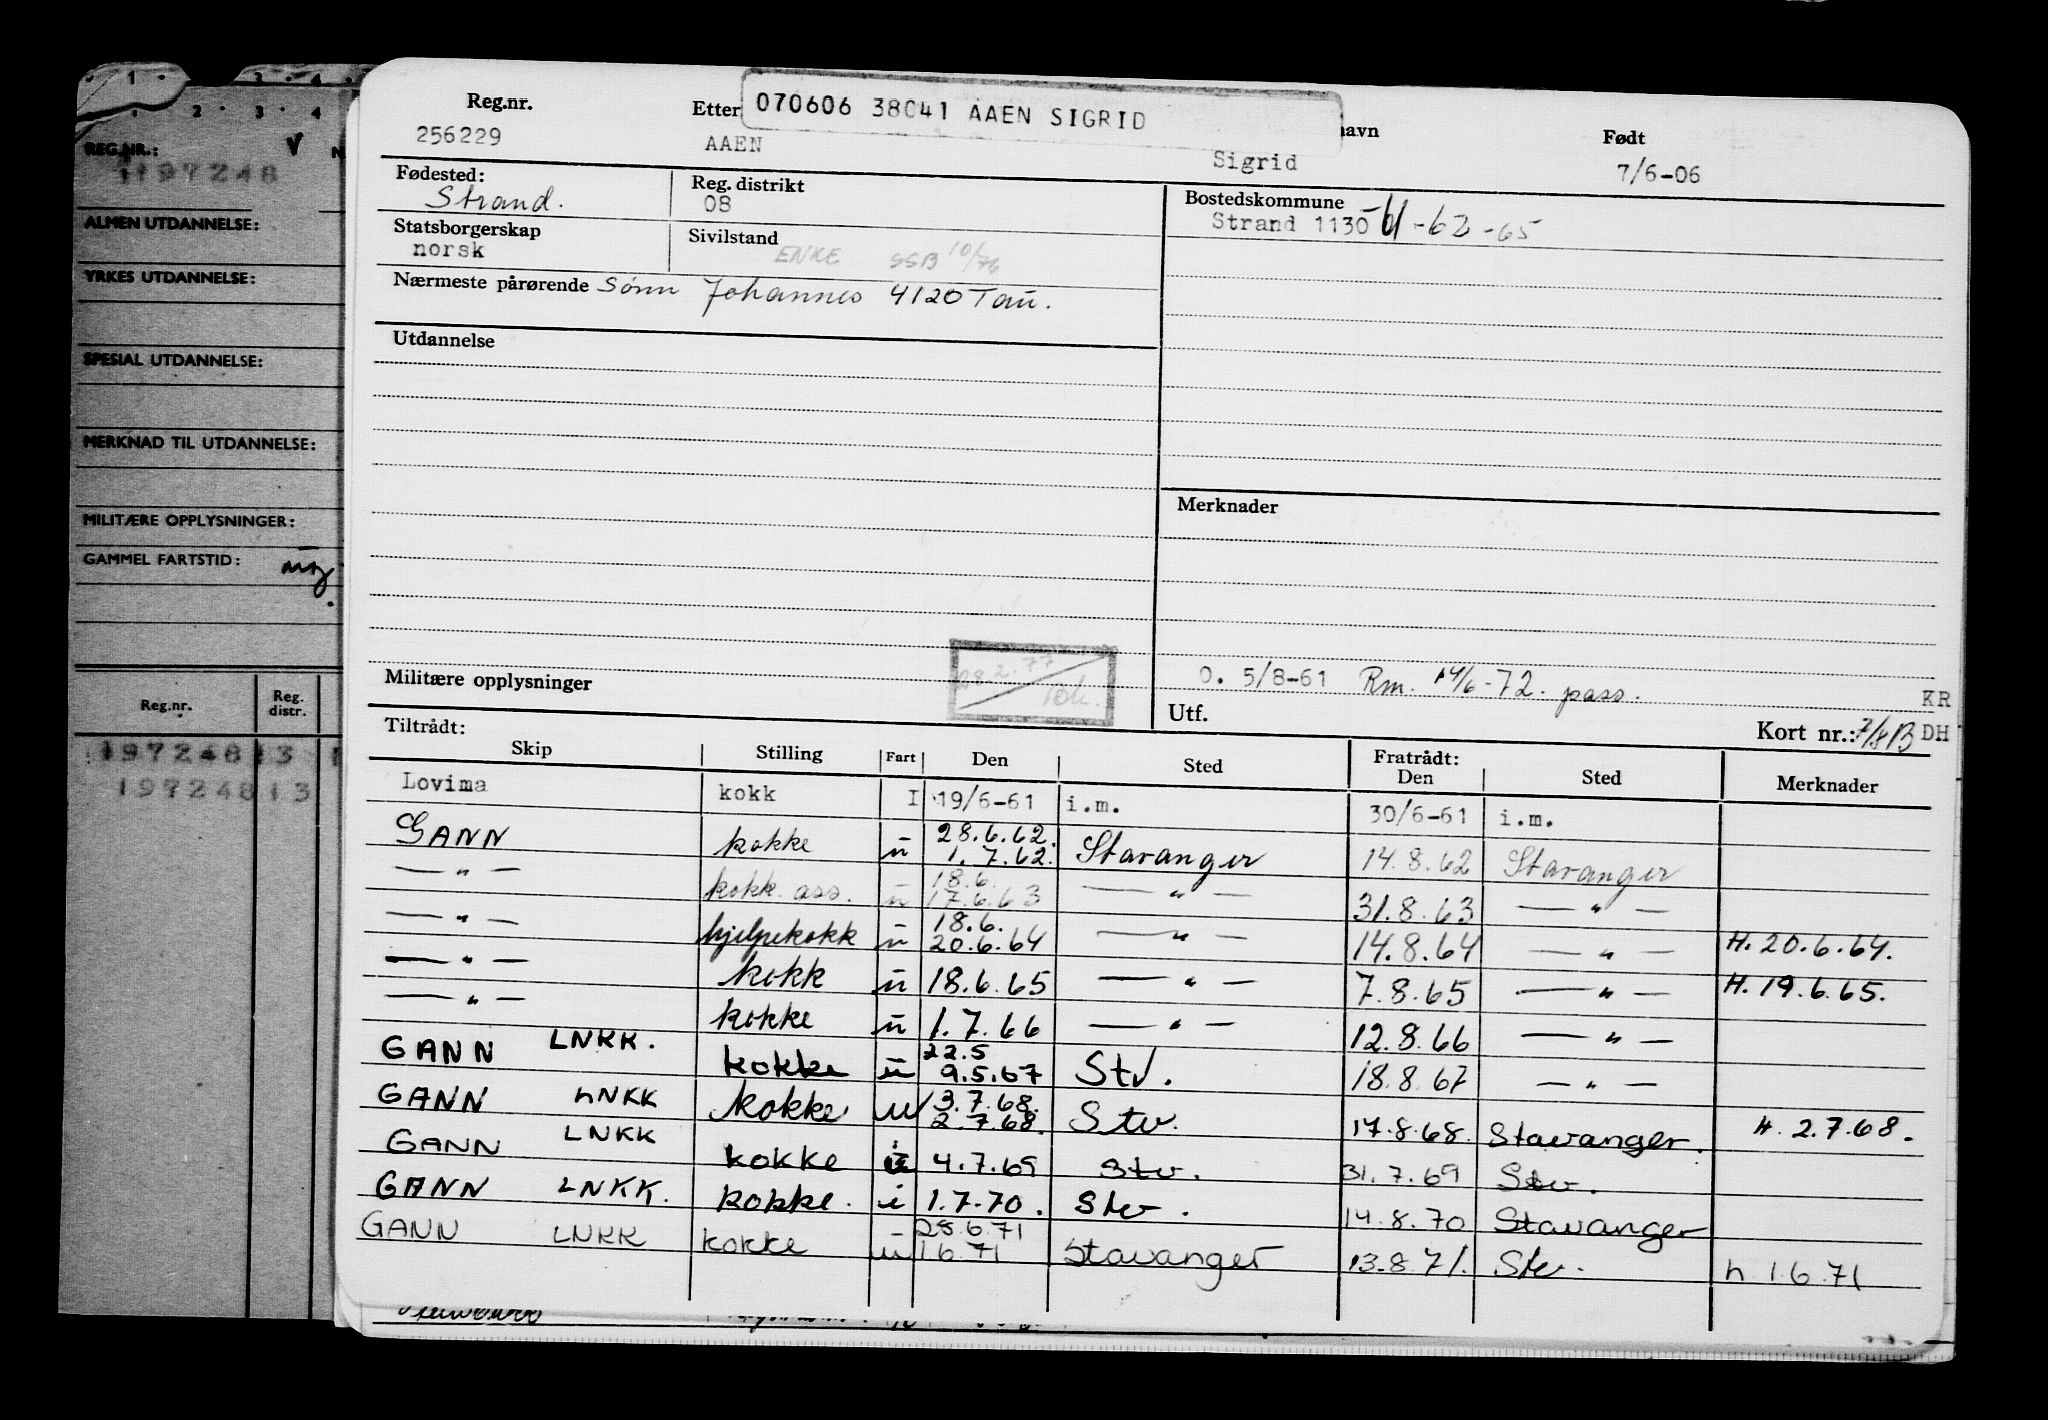 1 · 3 · 4
1 · 2 · 3 · 4
REG.NR.: N
197248
ALMEN UTDANNELSE:
YRKES UTDANNELSE:
SPESIAL UTDANNELSE:
MERKNAD TIL UTDANNELSE:
MILITÆRE OPPLYSNINGER:
GAMMEL FARTSTID:
Reg.nr. Reg. distr.
197248 13
197248 13
070606 38041 AAEN SIGRID
Reg.nr. Etter navn Født
256229 AAEN Sigrid 7/6-06
Fødested: Strand. Reg. distrikt 08 Bostedskommune Strand 1130 -62-65
Statsborgerskap norsk Sivilstand ENKE SSB 10/76
Nærmeste pårørende Sønn Johannes 4120 Tau.
Utdannelse
Merknader
28.2.77
Militære opplysninger
O. 5/8-61 Rm. 14/6-72. pass. KR
Utf. Kort nr.: 7/8B DH
Tiltrådt: Fratrådt:
Skip Stilling Fart Den Sted Den Sted Merknader
Lovima kokk I 19/6-61 i.m. 30/6-61 i.m.
GANN kokke u 28.6.62. 1.7.62. Stavanger 14.8.62 Stavanger
— " — kokk ass. u 18.6. 17.6.63 — " — 31.8.63 — " —
— " — hjelpekokk u 18.6. 20.6.64 — " — 14.8.64 — " — H. 20.6.64.
— " — kokk u 18.6.65 — " — 7.8.65 — " — H. 19.6.65.
— " — kokke u 1.7.66 — " — 12.8.66 — " —
GANN LNKK. kokke u 22.5 9.5.67 Stv. 18.8.67 — " —
GANN LNKK kokke u 3.7.68. 2.7.68. Stv. 17.8.68. Stavanger. H. 2.7.68.
GANN LNKK kokke 4.7.69 Stv. 31.7.69 Stv.
GANN LNKK. kokke. i 1.7.70. Stv. 14.8.70 Stavanger
GANN LNKK kokke u 28.6.71 1.6.71 Stavanger 13.8.71. Stv. h. 1.6.71